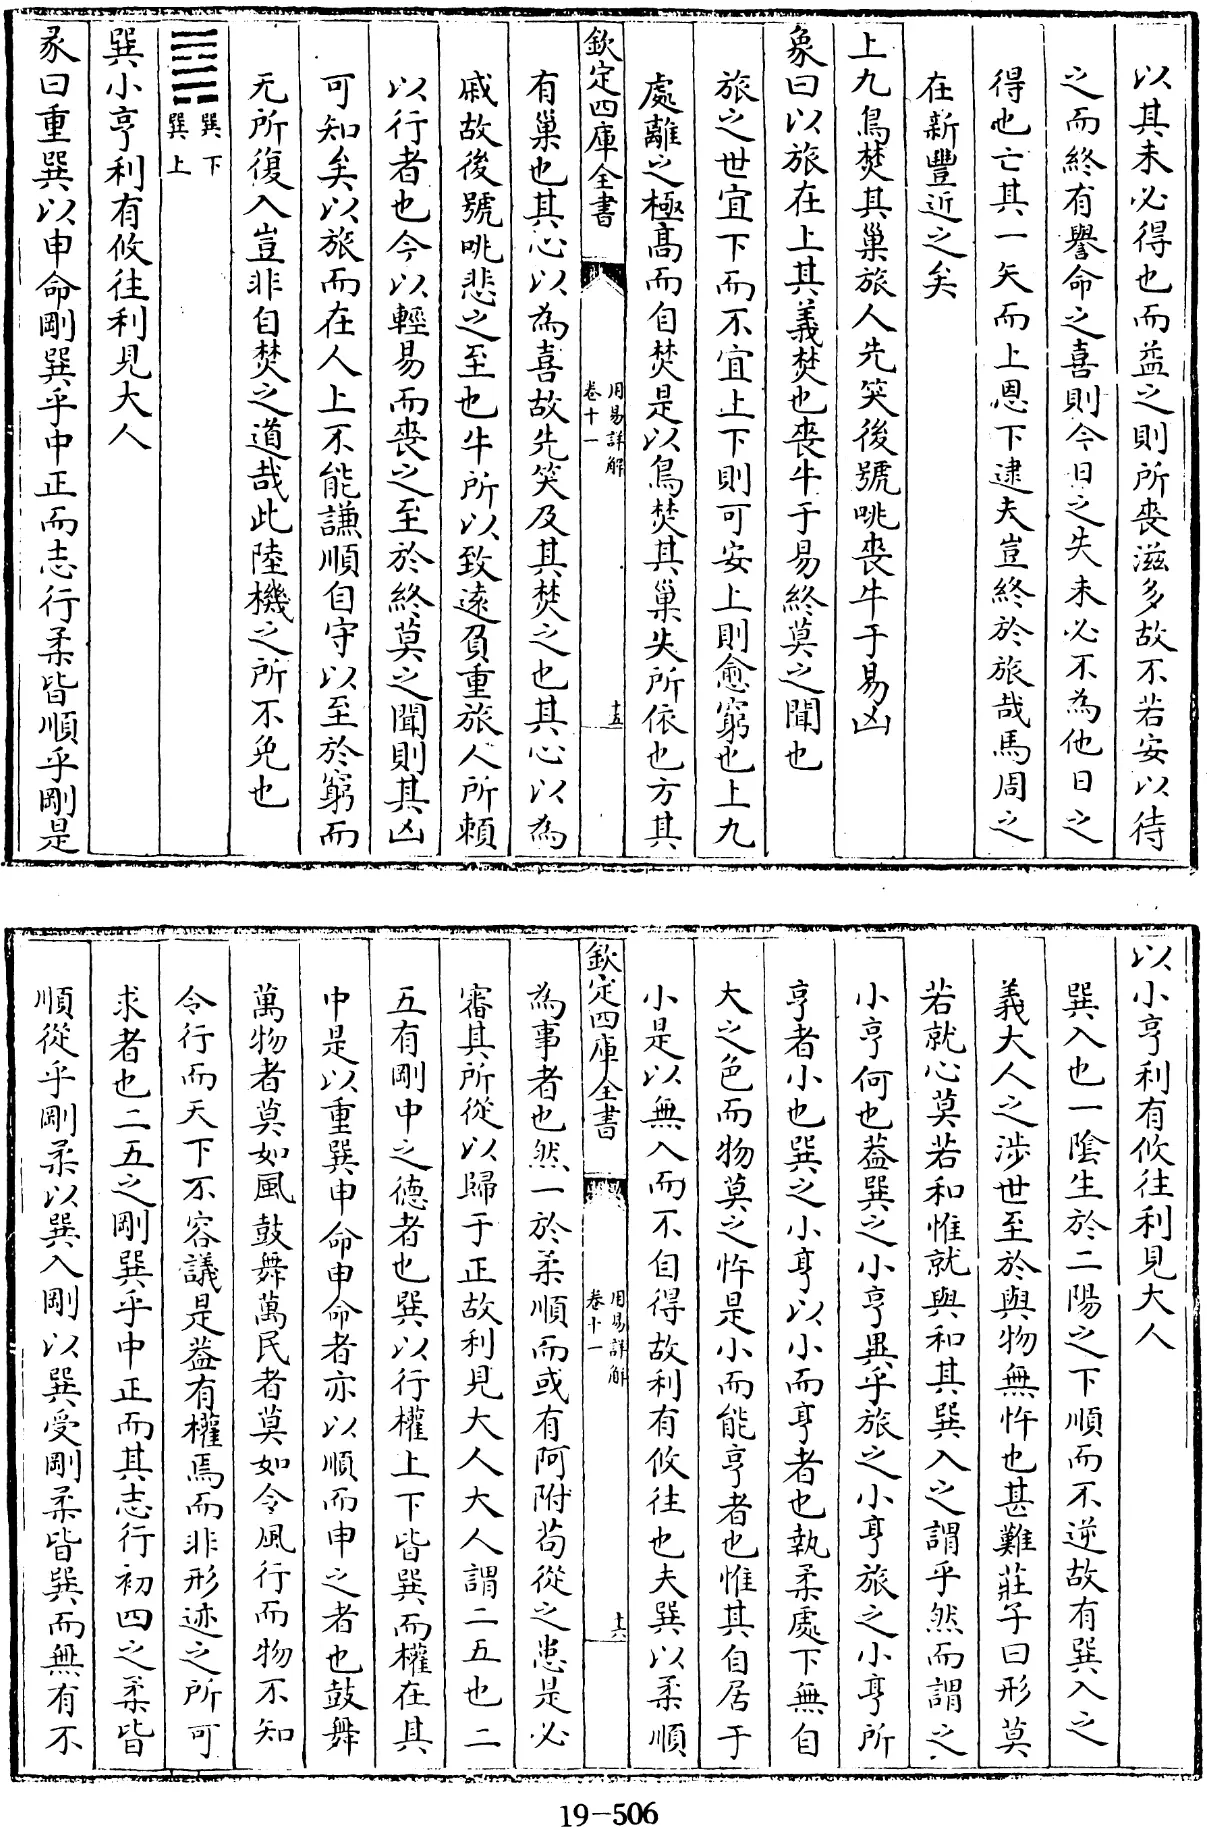 以其未必得也而益之則所喪滋多故不若安以待
之而終有譽命之喜則今日之失未必不為他日之
得也亡其一矢而上恩下逮夫豈終於旅哉馬周之
在新豐近之矣
上九鳥焚其巢旅人先笑後號咷喪牛于易凶
象曰以旅在上其義焚也喪牛于易終莫之聞也
旅之世宜下而不宜上下則可安上則愈窮也上九
處離之極高而自焚是以鳥焚其巢失所依也方其
欽定四庫全書
用易詳解
卷十一
十五
有巢也其心以為喜故先笑及其焚之也其心以為
戚故後號咷悲之至也牛所以致遠負重旅人所賴
以行者也今以輕易而喪之至於終莫之聞則其凶
可知矣以旅而在人上不能謙順自守以至於窮而
无所復入豈非自焚之道哉此陸機之所不免也
巽下
巽上
巽小亨利有攸往利見大人
彖曰重巽以申命剛巽乎中正而志行柔皆順乎剛是
以小亨利有攸往利見大人
巽入也一陰生於二陽之下順而不逆故有巽入之
義大人之涉世至於與物無忤也甚難莊子曰形莫
若就心莫若和惟就與和其巽入之謂乎然而謂之
小亨何也葢巽之小亨異乎旅之小亨旅之小亨所
亨者小也巽之小亨以小而亨者也執柔處下無自
大之色而物莫之忤是小而能亨者也惟其自居于
小是以無入而不自得故利有攸往也夫巽以柔順
欽定四庫全書
用易詳解
卷十一
十六
為事者也然一於柔順而或有阿附苟從之患是必
審其所從以歸于正故利見大人大人謂二五也二
五有剛中之德者也巽以行權上下皆巽而權在其
中是以重巽申命申命者亦以順而申之者也鼓舞
萬物者莫如風鼓舞萬民者莫如令風行而物不知
令行而天下不容議是葢有權焉而非形迹之所可
求者也二五之剛巽乎中正而其志行初四之柔皆
順從乎剛柔以巽入剛以巽受剛柔皆巽而無有不
19-506